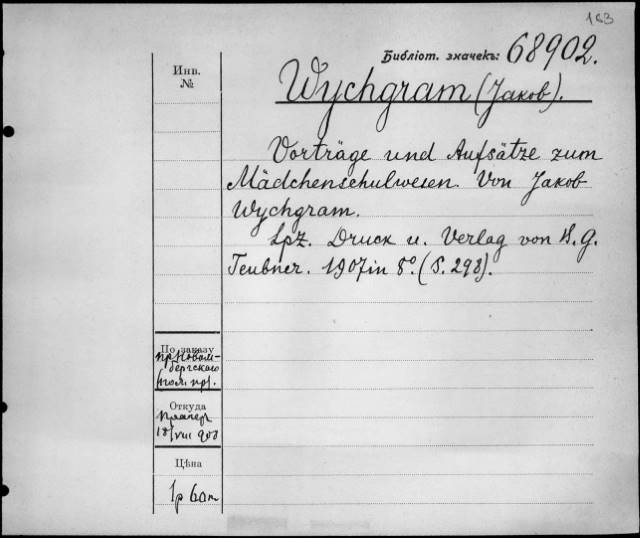 163
Библіот. значекъ: 68902.
Инв.
№
Wychgram (Jakob).
Vorträge und Aufsätze zum
Mädchenschulwesen. Von Jakob
Wychgram.
Lpz. Druck u. Verlag von B. G.
Teubner. 1907 in 8º. (S. 298).
По заказу
пр. Новом-
бергского
Откуда
18/VIII 908
Цѣна
1р 60к